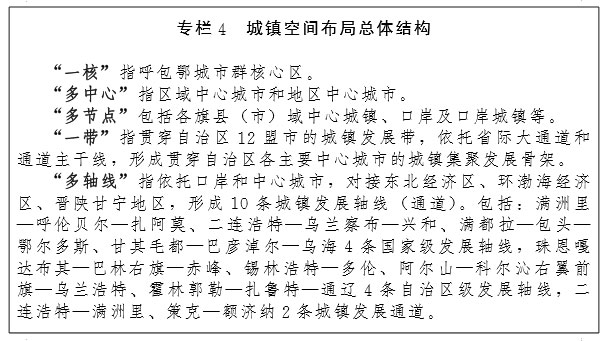 专栏 4 城镇空间布局总体结构
“一核”指呼包鄂城市群核心区。
“多中心”指区域中心城市和地区中心城市。
“多节点”包括各旗县（市）域中心城镇、口岸及口岸城镇等。
“一带”指贯穿自治区 12 盟市的城镇发展带，依托省际大通道和
通道主干线，形成贯穿自治区各主要中心城市的城镇集聚发展骨架。
“多轴线”指依托口岸和中心城市，对接东北经济区、环渤海经济
区、晋陕甘宁地区，形成 10 条城镇发展轴线（通道）。包括：满洲里
—呼伦贝尔—扎阿莫、二连浩特—乌兰察布—兴和、满都拉—包头—
鄂尔多斯、甘其毛都—巴彦淖尔—乌海 4 条国家级发展轴线，珠恩嘎
达布其—巴林右旗—赤峰、锡林浩特—多伦、阿尔山—科尔沁右翼前
旗—乌兰浩特、霍林郭勒—扎鲁特—通辽 4 条自治区级发展轴线，二
连浩特—满洲里、策克—额济纳 2 条城镇发展通道。